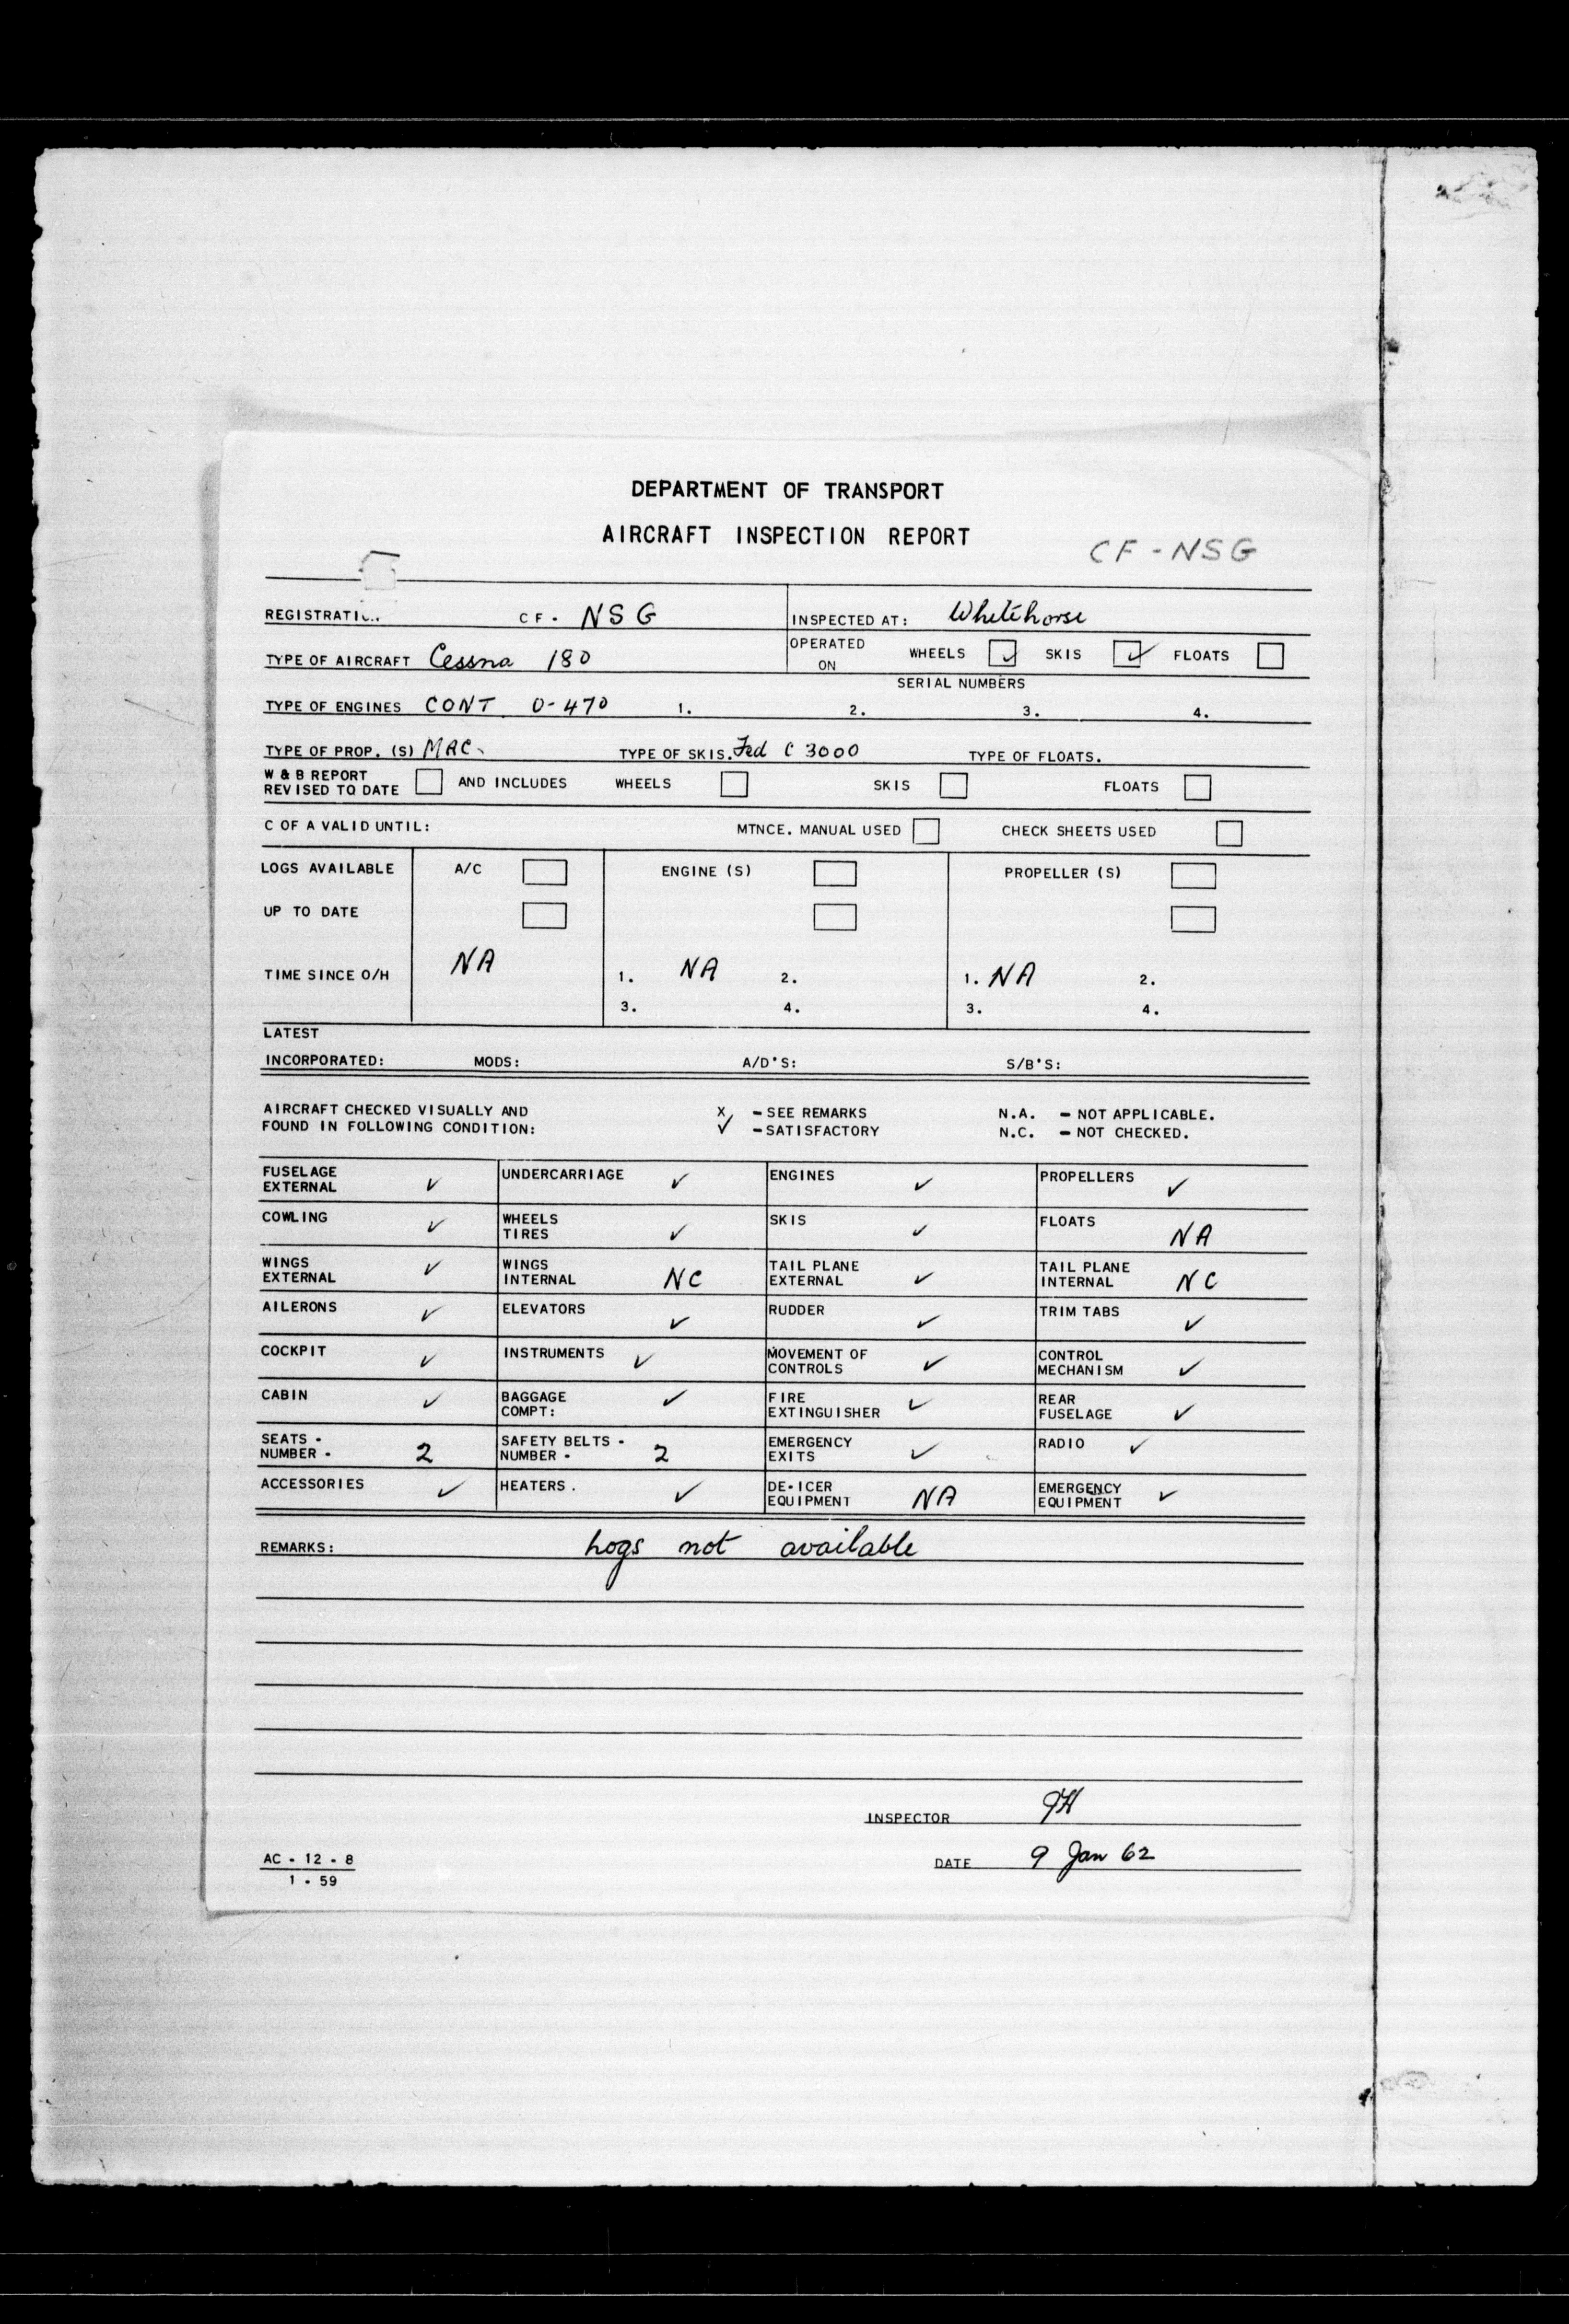 DEPARTMENT OF TRANSPORT
AIRCRAFT INSPECTION REPORT
CF-NSG
REGISTRATI CF. NSG INSPECTED AT: Whitehorse
TYPE OF AIRCRAFT Cessna 180 OPERATED ON WHEELS ✓ SKIS ✓ FLOATS
SERIAL NUMBERS
TYPE OF ENGINES CONT O-470 1. 2. 3. 4.
TYPE OF PROP. (S) MAC. TYPE OF SKIS. Fed C 3000 TYPE OF FLOATS.
W & B REPORT
REVISED TO DATE AND INCLUDES WHEELS SKIS FLOATS
C OF A VALID UNTIL: MTNCE. MANUAL USED CHECK SHEETS USED
LOGS AVAILABLE A/C ENGINE (S) PROPELLER (S)
UP TO DATE
TIME SINCE O/H NA 1. NA 2. 1. NA 2.
3. 4. 3. 4.
LATEST
INCORPORATED: MODS: A/D'S: S/B'S:
AIRCRAFT CHECKED VISUALLY AND X - SEE REMARKS N.A. - NOT APPLICABLE.
FOUND IN FOLLOWING CONDITION: ✓ - SATISFACTORY N.C. - NOT CHECKED.
FUSELAGE EXTERNAL ✓ UNDERCARRIAGE ✓ ENGINES ✓ PROPELLERS ✓
COWLING ✓ WHEELS TIRES ✓ SKIS ✓ FLOATS NA
WINGS EXTERNAL ✓ WINGS INTERNAL NC TAIL PLANE EXTERNAL ✓ TAIL PLANE INTERNAL NC
AILERONS ✓ ELEVATORS ✓ RUDDER ✓ TRIM TABS ✓
COCKPIT ✓ INSTRUMENTS ✓ MOVEMENT OF CONTROLS ✓ CONTROL MECHANISM ✓
CABIN ✓ BAGGAGE COMPT: ✓ FIRE EXTINGUISHER ✓ REAR FUSELAGE ✓
SEATS - NUMBER - 2 SAFETY BELTS - NUMBER - 2 EMERGENCY EXITS ✓ RADIO ✓
ACCESSORIES ✓ HEATERS. ✓ DE-ICER EQUIPMENT NA EMERGENCY EQUIPMENT ✓
REMARKS: Logs not available
INSPECTOR
DATE 9 Jan 62
AC - 12 - 8
1 - 59